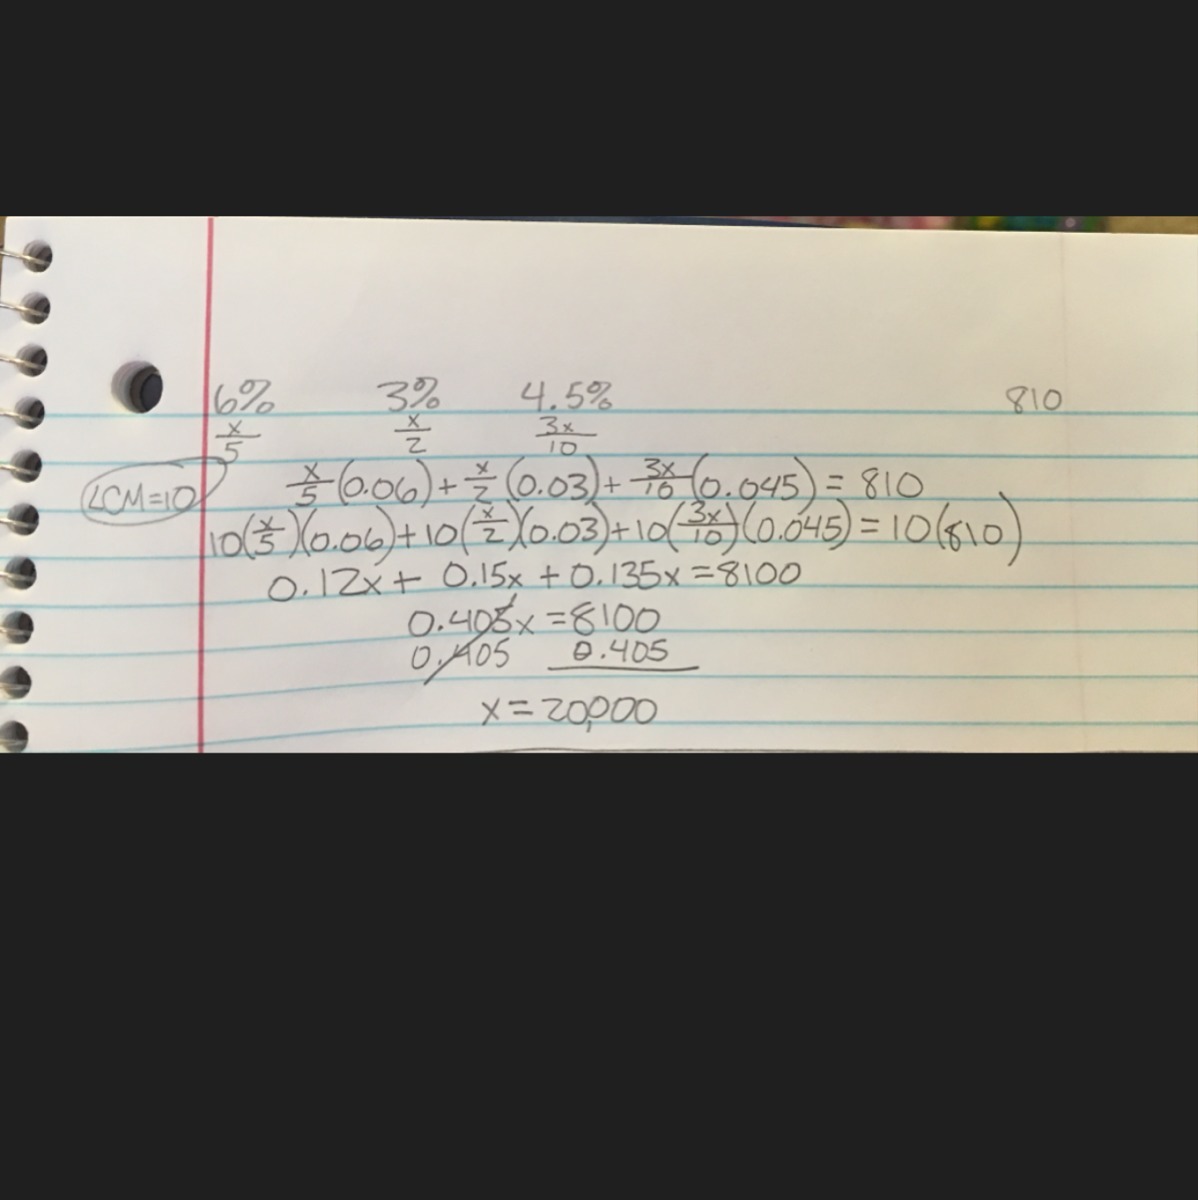 6% 3% 4.5% 810
x/5 x/2 3x/10
LCM=10 x/5(0.06)+x/2(0.03)+3x/10(0.045)=810
10(x/5)(0.06)+10(x/2)(0.03)+10(3x/10)(0.045)=10(810)
0.12x+0.15x+0.135x=8100
0.405x=8100
0.405 0.405
x=20,000